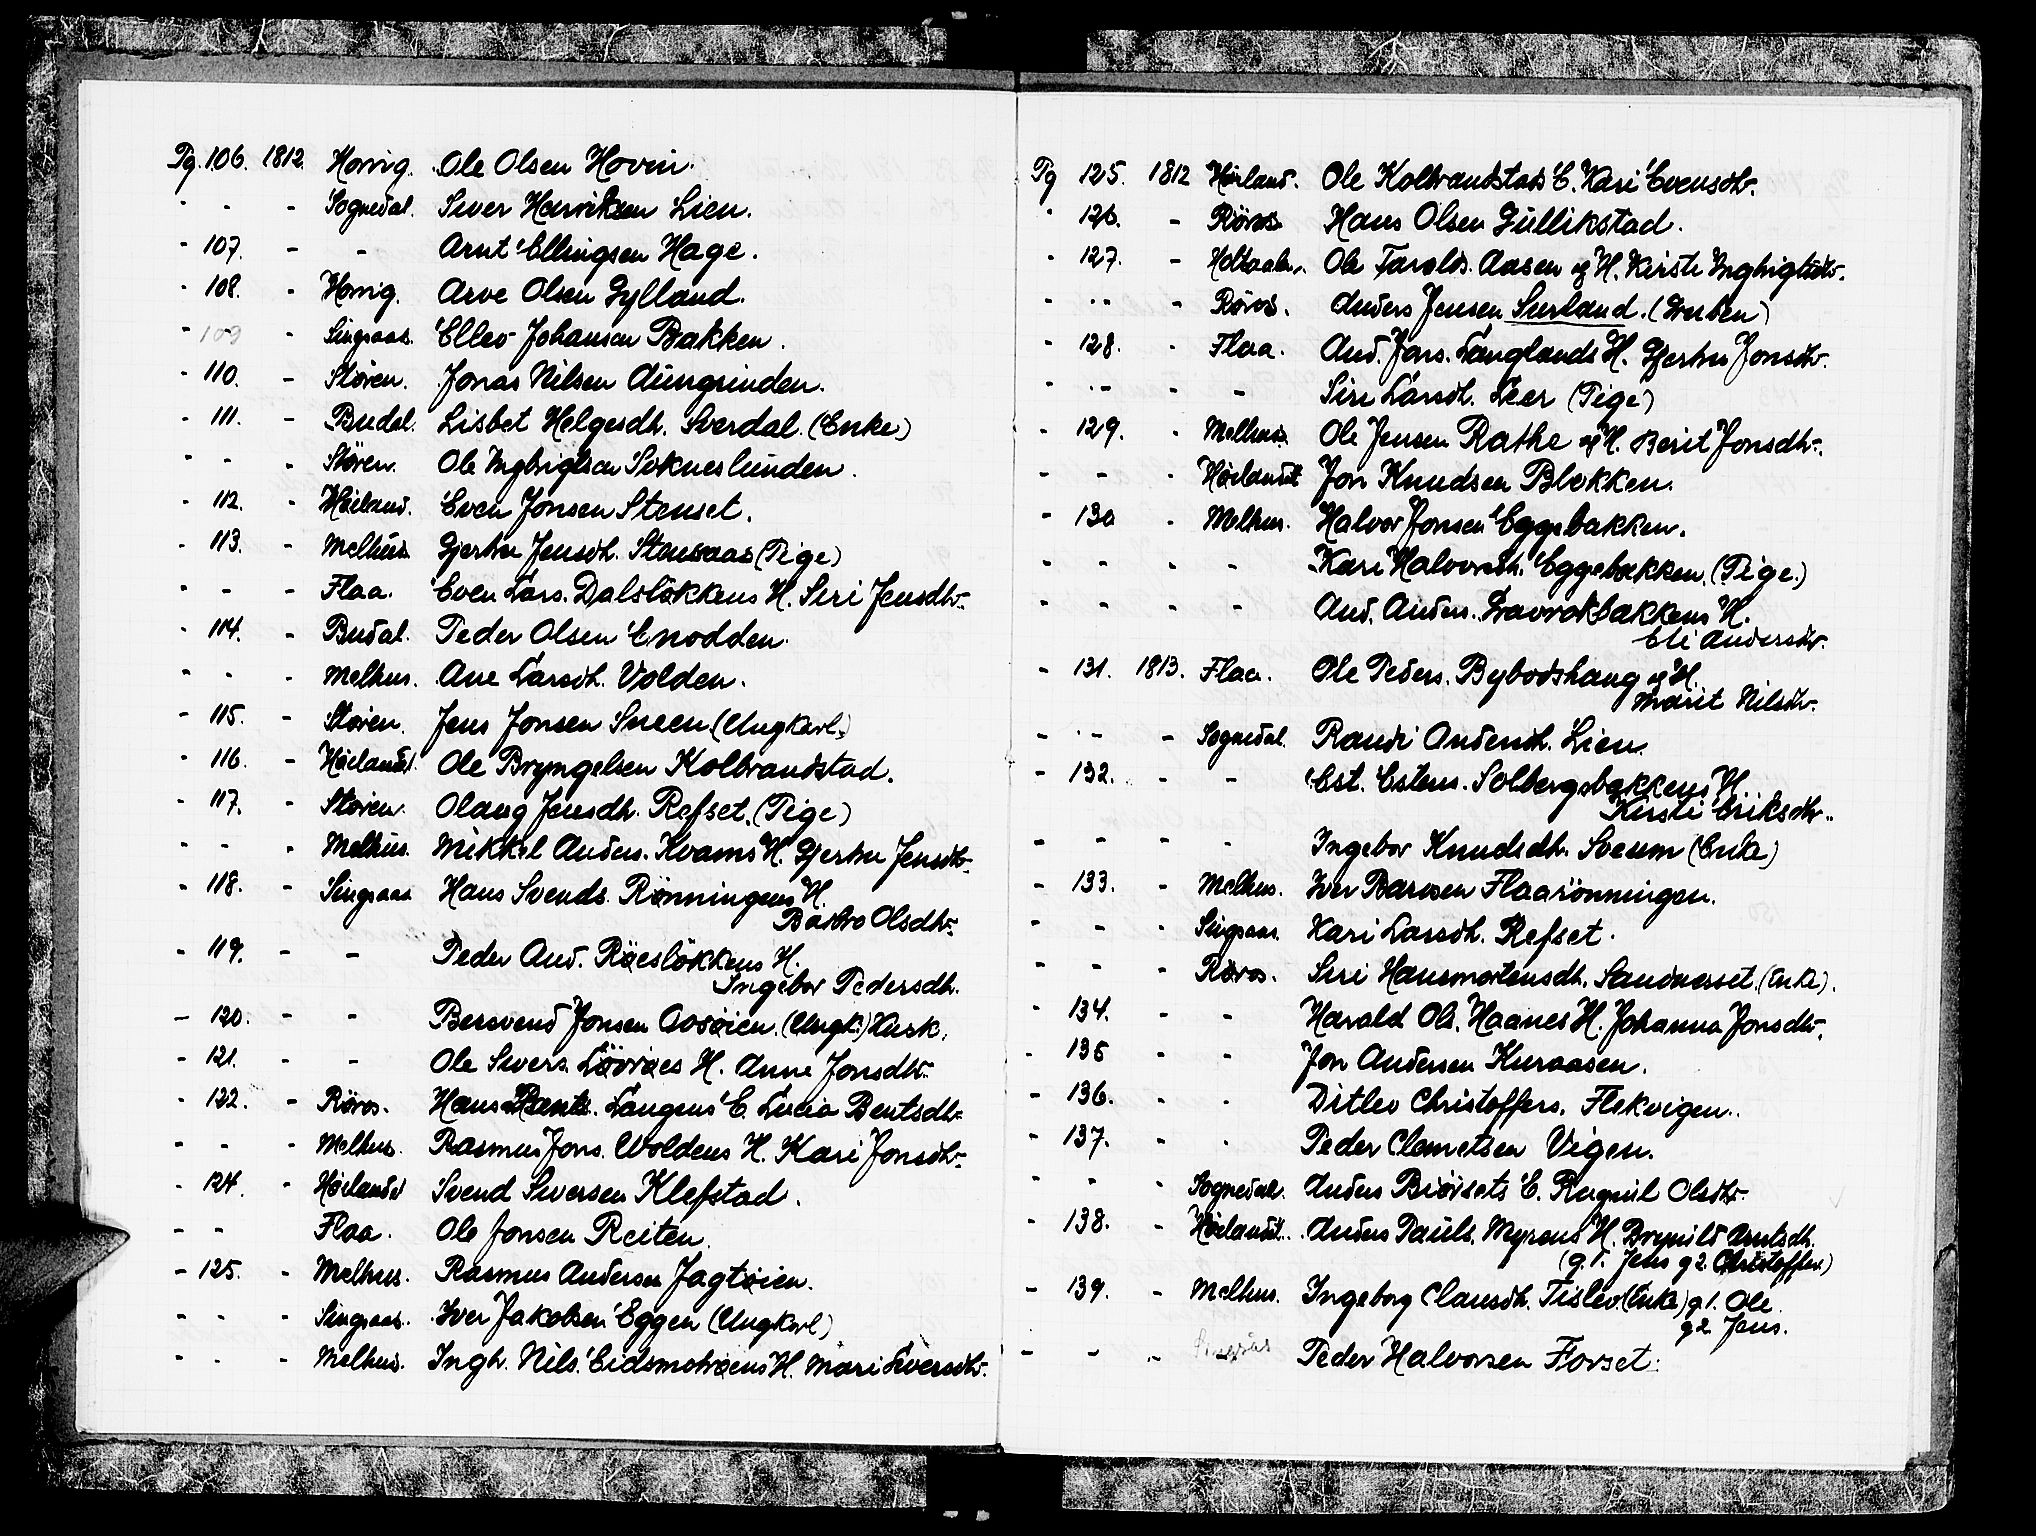 Pg. 106. 1812. Horrig. Ole Olsen Hovin.
- - - Sognedal. Siver Henriksen Lien.
- 107. - - Arnt Ellingsen Hage.
- 108. - Horrig. Arve Olsen Gylland.
- 109 - Singsaas. Ellev Johansen Bakken.
- 110. - Støren. Jonas Nilsen Aungrinden.
- 111. - Budal. Lisbet Helgesdh. Sverdal. (Enke)
- - - Støren. Ole Ingbrigtsen Soknes lunden.
- 112. - Høiland. Even Jonsen Stenset.
- 113. - Melhus. Gjertru Jensdh. Stensaas (Pige)
- - - Flaa. Even Lars. Dalsløkkens H. Siri Jensdtr.
- 114. - Budal. Peder Olsen Enodden.
- - - Melhus. Ane Larsdh. Volden.
- 115. - Støren. Jens Jonsen Sneen. (Ungkarl.)
- 116. - Høilandet. Ole Bryngelsen Kolbrandstad.
- 117. - Støren. Olaug Jensdh. Refset. (Pige)
- - - Melhus. Mikkel Anders. Kvams H. Gjertru Jensdtr.
- 118. - Singsaas Hans Svends. Rønningens H.
Barbro Olsdtr.
- 119. - - Peder And. Røesløkkens H.
Ingebor Pedersdh.
- 120. - - Bersvend Jonsen Aasøien. (Ungk.) Kusk.
- 121. - - Ole Sivers. Løvraes H. Anne Jonsdtr.
- 122. - Røros. Hans Bents. Langens E. Lucia Bentsdtr.
- - - Melhus. Rasmus Jons. Woldens H. Kari Jonsdtr.
- 124. - Høilandet Svend Siversen Klefstad.
- - Flaa. Ole Jonsen Reiten.
- 125. - Melhus. Rasmus Andersen Jagtøien.
- - - Singsaas. Iver Jakobsen Eggen (Ungkarl)
- - - Melhus. Ingb. Nils. Eidsmoraens H. Mari Iversdtr.
Pg 125. 1812 Høiland. Ole Kolbrandstads E. Kari Evensdtr.
- 126. - Røros. Hans Olsen Gullikstad.
- 127. - Holtaalen. Ole Farolds. Aasen og H. Kirsti Ingbrigtsdtr.
- - - Røros. Anders Jensen Surland. (Gruben)
- 128. - Flaa. And. Jons. Langlands H. Gjertru Jonsdtr.
- - - - Siri Larsdh. Leer (Pige)
- 129. - Melhus. Ole Jensen Rathe og H. Berit Jonsdh.
- - - Høilandet Jon Knudsen Blekken.
- 130 - Melhus. Halvor Jonsen Eggebakken.
- - - - Kari Halvorsdh. Eggebakken. (Pige.)
- - - - And. Anders. Gavrokbakkens H.
Eli Andersdtr.
- 131. 1813. Flaa. Ole Peders. Bybodshaug og H.
Marit Nilsdtr.
- - - Sognedal. Randi Andersdh. Lien.
- 132. - - Est. Estens. Solbergsbakkens H.
Kirsti Eriksdtr.
- - - - Ingebor Knudsdh. Sveum (Enke)
- 133. - Melhus. Iver Barosen Flaarønningen.
- - - Singsaas. Kari Larsdh. Refset.
- - - Røros. Siri Hansmortensdh. Sandnesset. (Enke).
- 134. - - Harald Ols. Haanes H. Johanna Jonsdtr.
- 135 - - Jon Andersen Kuraasen.
- 136. - - Ditlev Christoffers. Flekvigen.
- 137. - - Peder Clemetsen Vigen.
- - - Sognedal. Anders Biørsets E. Ragnil Olsdtr.
- 138. - Høilandet. Anders Pauls. Myrens H. Brynild Arntsdh.
(g. 1. Jens g 2. Christoffer.)
- 139. - Melhus. Ingeborg Clausdh. Tislev (Enke) g 1. Ole.
g 2. Jens.
- - - Singsås Peder Halvorsen Forset.